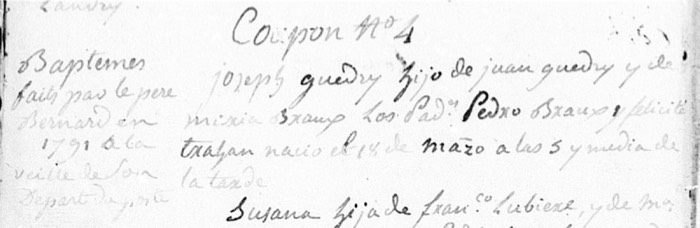 Landry.
Coupon No 4
Baptemes
faits par le pere
Bernard en
1791 à la
veille de son
Depart du poste
joseph guedry hijo de juan guedry y de
maria Braux Los Pad.s Pedro Braux y felicité
traham nacio el 18 de marzo a las 5 y media de
la tarde
Susana hija de fran.co Lubiere, y de